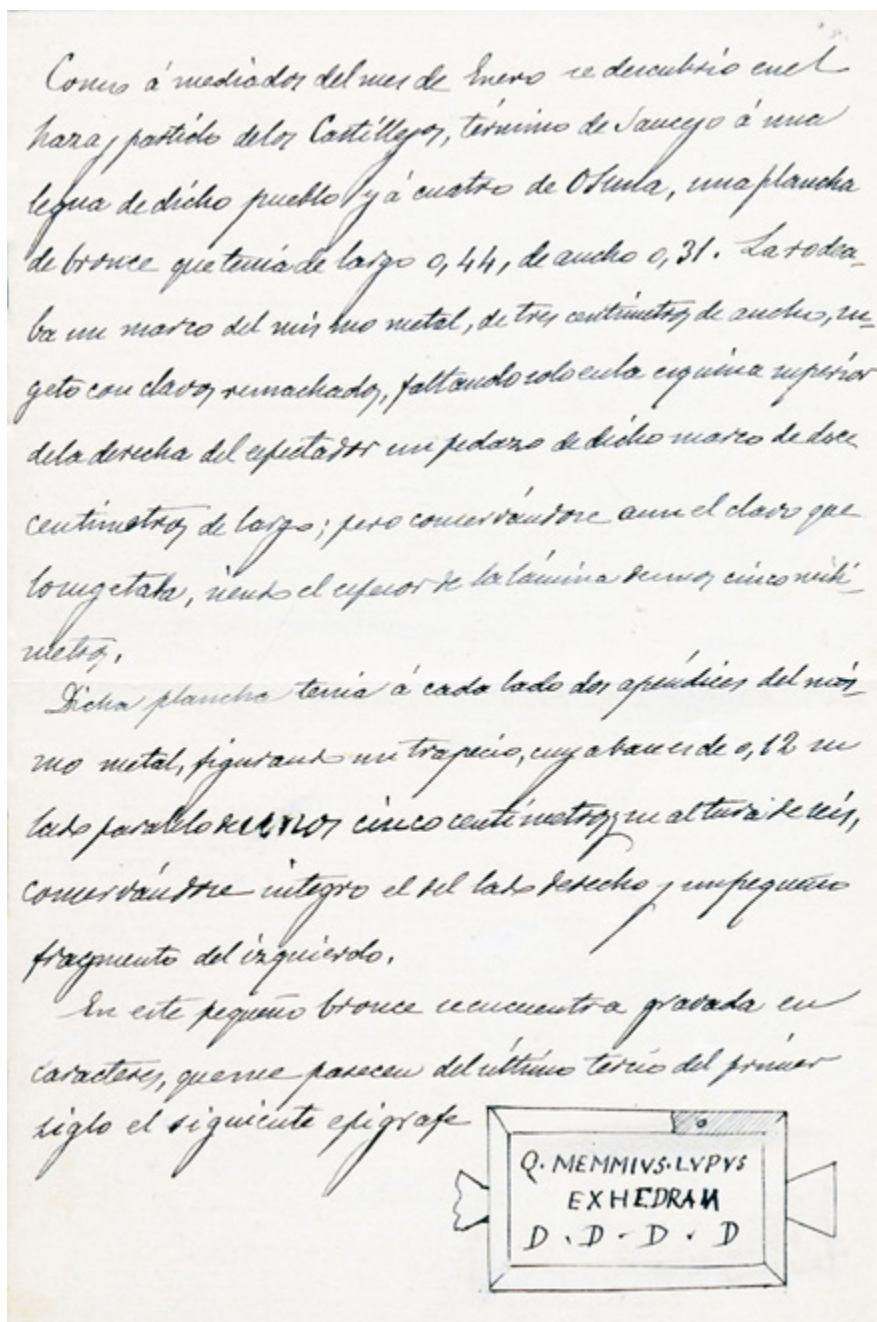 Como á mediados del mes de Enero se descubrio en el
haza y partido de los Castillejos, término de Saucejo á una
legua de dicho pueblo y á cuatro de Osuna, una plancha
de bronce que tenia de largo 0,44, de ancho 0,31. La rodea-
ba un marco del mismo metal, de tres centimetros de ancho, su-
geto con clavos remachados, faltando solo en la esquina superior
de la derecha del espectador un pedazo de dicho marco de doce
centimetros de largo; pero conservándose aun el clavo que
lo sugetaba, siendo el espesor de la lámina de unos cinco mili-
metros.
Dicha plancha tenia á cada lado dos apéndices del mis-
mo metal, figurando un trapecio, cuya base es de 0,12 su
lado paralelo de unos cinco centimetros y su altura de seis,
conservándose integro el del lado derecho y un pequeño
fragmento del izquierdo.
En este pequeño bronce se encuentra gravada en
caracteres, que me parecen del último tercio del primer
siglo el siguiente epigrafe
Q. MEMMIVS. LVPVS
EXHEDRAM
D . D . D . D